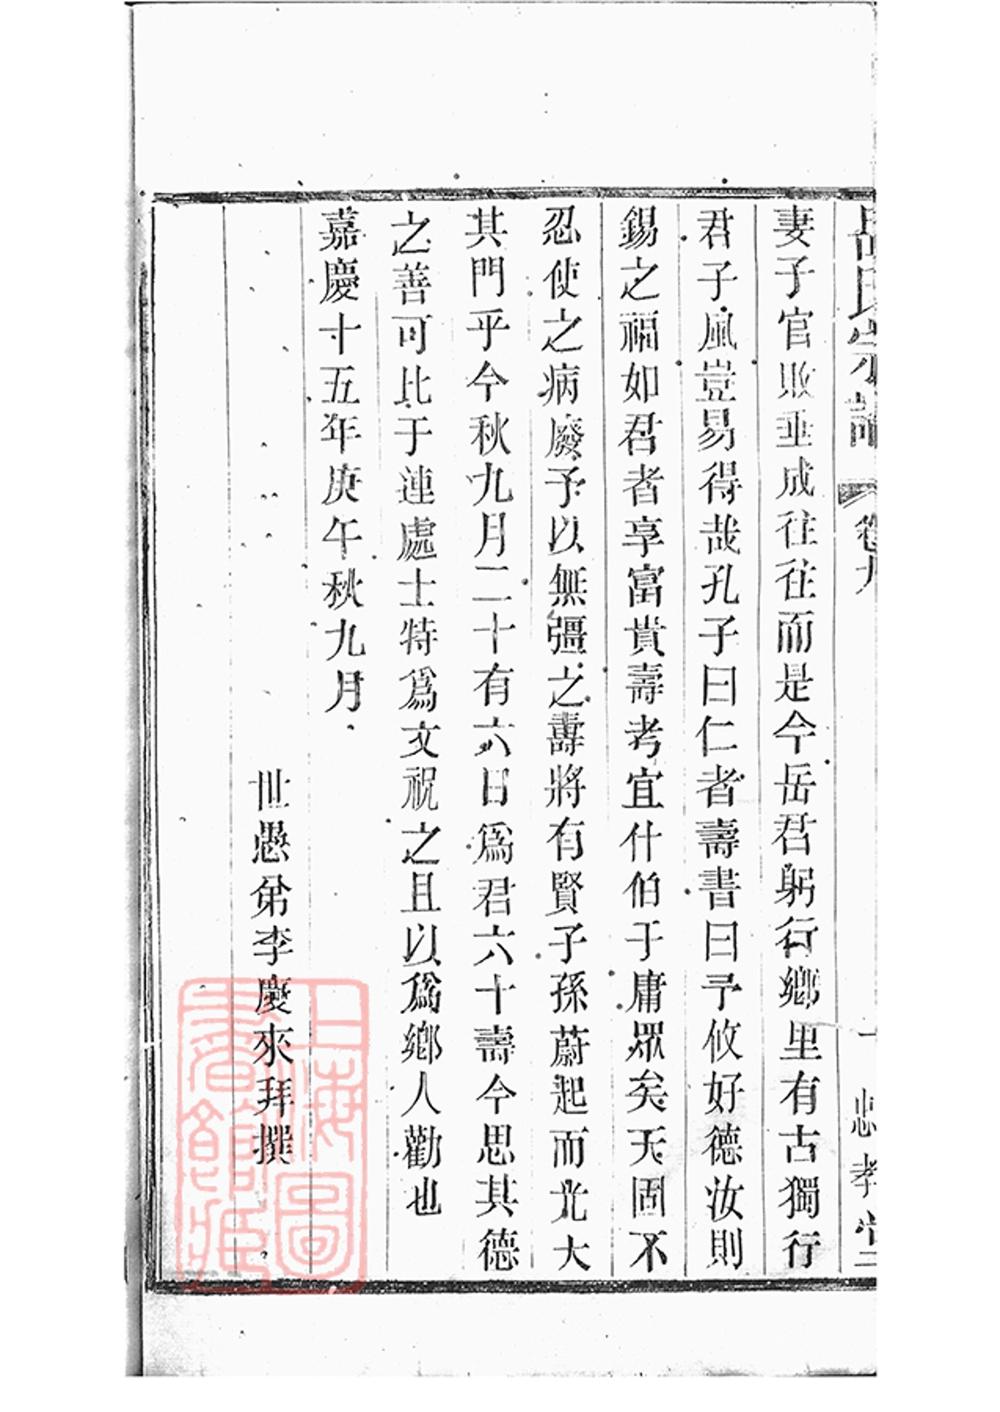 岳氏宗譜 卷九 一 忠孝堂
妻子官敗垂成往往而是今岳君躬行鄉里有古獨行
君子風豈易得哉孔子曰仁者壽書曰予攸好德汝則
錫之福如君者享富貴壽考宜什伯于庸眾矣天固不
忍使之病廢予以無疆之壽將有賢子孫蔚起而光大
其門乎今秋九月二十有六日為君六十壽今思其德
之善可比于連處士特為文祝之且以為鄉人勸也
嘉慶十五年庚午秋九月
世愚弟李慶來拜撰
上海圖
書館藏